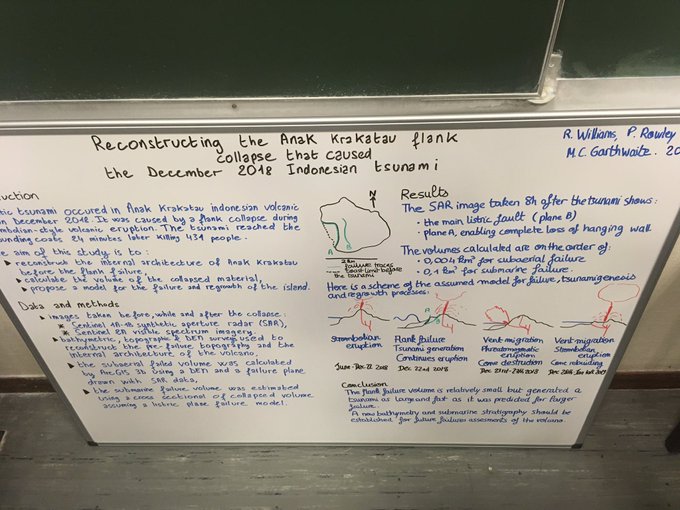 Reconstructing the Anak Krakatau flank
collapse that caused
the December 2018 Indonesian tsunami
R. Williams, P. Rowley
M.C. Garthwaite. 20
uction
tic tsunami occured in Anak Krakatau indonesian volcanic
in December 2018. It was caused by a flank collapse during
mbolian-style volcanic eruption. The tsunami reached the
ounding coasts 24 minutes later killing 431 people.
e aim of this study is to:
reconstruct the internal architecture of Anak Krakatau
before the flank failure,
calculate the volume of the collapsed material,
propose a model for the failure and regrowth of the island.
Data and methods
images taken before, while and after the collapse:
* Sentinel synthetic aperture radar (SAR),
* Sentinel visible spectrum imagery.
bathymetric, topographic & DEM surveys used to
reconstruct the pre-failure topography and the
internal architecture of the volcano,
the subaerial failed volume was calculated
by ArcGIS by using a DEM and a failure plane
drawn with SAR data,
the submarine failure volume was estimated
using a cross sectional of collapsed volume
assuming a listric plane failure model.
N
A
B
2 km
failure traces
coast limit before
the tsunami
Results
The SAR image taken 8h after the tsunami shows:
• the main listric fault (plane B)
• plane A, enabling complete loss of hanging wall
The volumes calculated are on the order of:
• 0,004 km³ for subaerial failure
• 0,1 km³ for submarine failure.
Here is a scheme of the assumed model for failure, tsunamigenesis
and regrowth processes:
Strombolian
eruption
June - Dec 22 2018
Flank failure
Tsunami generation
Continues eruption
Dec 22nd 2018
Vent migration
Phreatomagmatic
eruption
Cone destruction
Vent migration
Strombolian
eruption
Cone rebuilding
Conclusion
The flank failure volume is relatively small but generated a
tsunami as large and fast as it was predicted for larger
failure.
A new bathymetry and submarine stratigraphy should be
established for future failures assesments of the volcano.